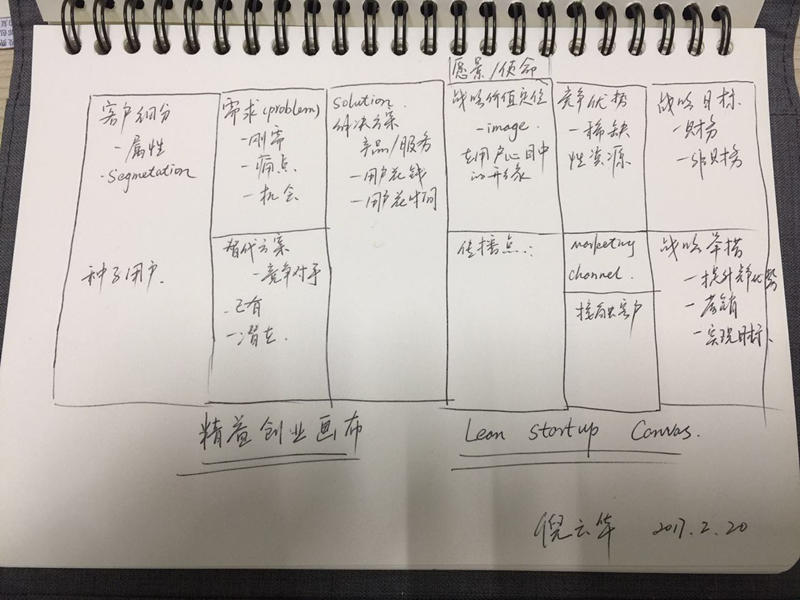 客户细分
-属性
-Segmetation
种子用户.
需求(problem)
-刚需
-痛点
-机会
替代方案
-竞争对手
.已有
-潜在.
Solution.
解决方案
产品/服务
-用户花钱
-用户花时间
愿景/使命
战略价值定位
-image.
在用户心目中
的形象
传播点..:
竞争优势
-稀缺
性资源
marketing
channel.
接触客户
战略目标.
-财务
-非财务
战略举措
-提升竞争优势
-营销
-实现目标
精益创业画布
Lean Startup Canvas.
倪云华 2017.2.20